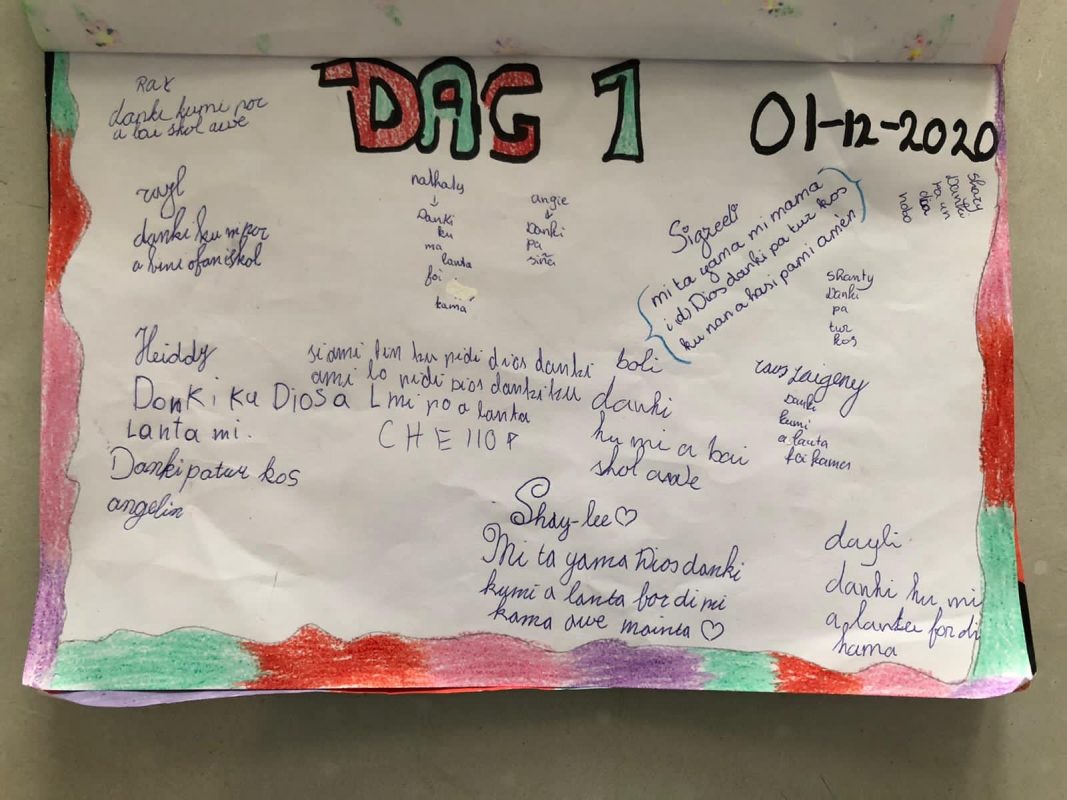 DAG 1
01-12-2020
Rax
danki kumi por
a bai skol awe
rayl
danki ku mi por
a bini ofani skol
nathaly
↓
Danki
ku
ma
lanta
foi
kama
angie
↓
Danki
pa
siña
Sigreed
mi ta yama mi mama
i (d) Dios danki pa tur kos
ku nan a hasi pami amén
shary
Danki
pa un
dia
nobo
shanty
Danki
pa
tur
kos
Heiddy
Danki ku Dios a
Lanta mi.
Danki pa tur kos
angelin
si ami tin ku pidi dios danki
ami lo pidi dios danki ku
L mi po a lanta
boli
danki
ku mi a bai
skol awe
zaigeny
Danki
kumi
a lauta
foi kamer
Shay-lee♡
Mi ta yama Dios danki
kumi a lanta for di mi
kama awe mainta ♡
dayli
danki ku mi
a lanta for di
kama